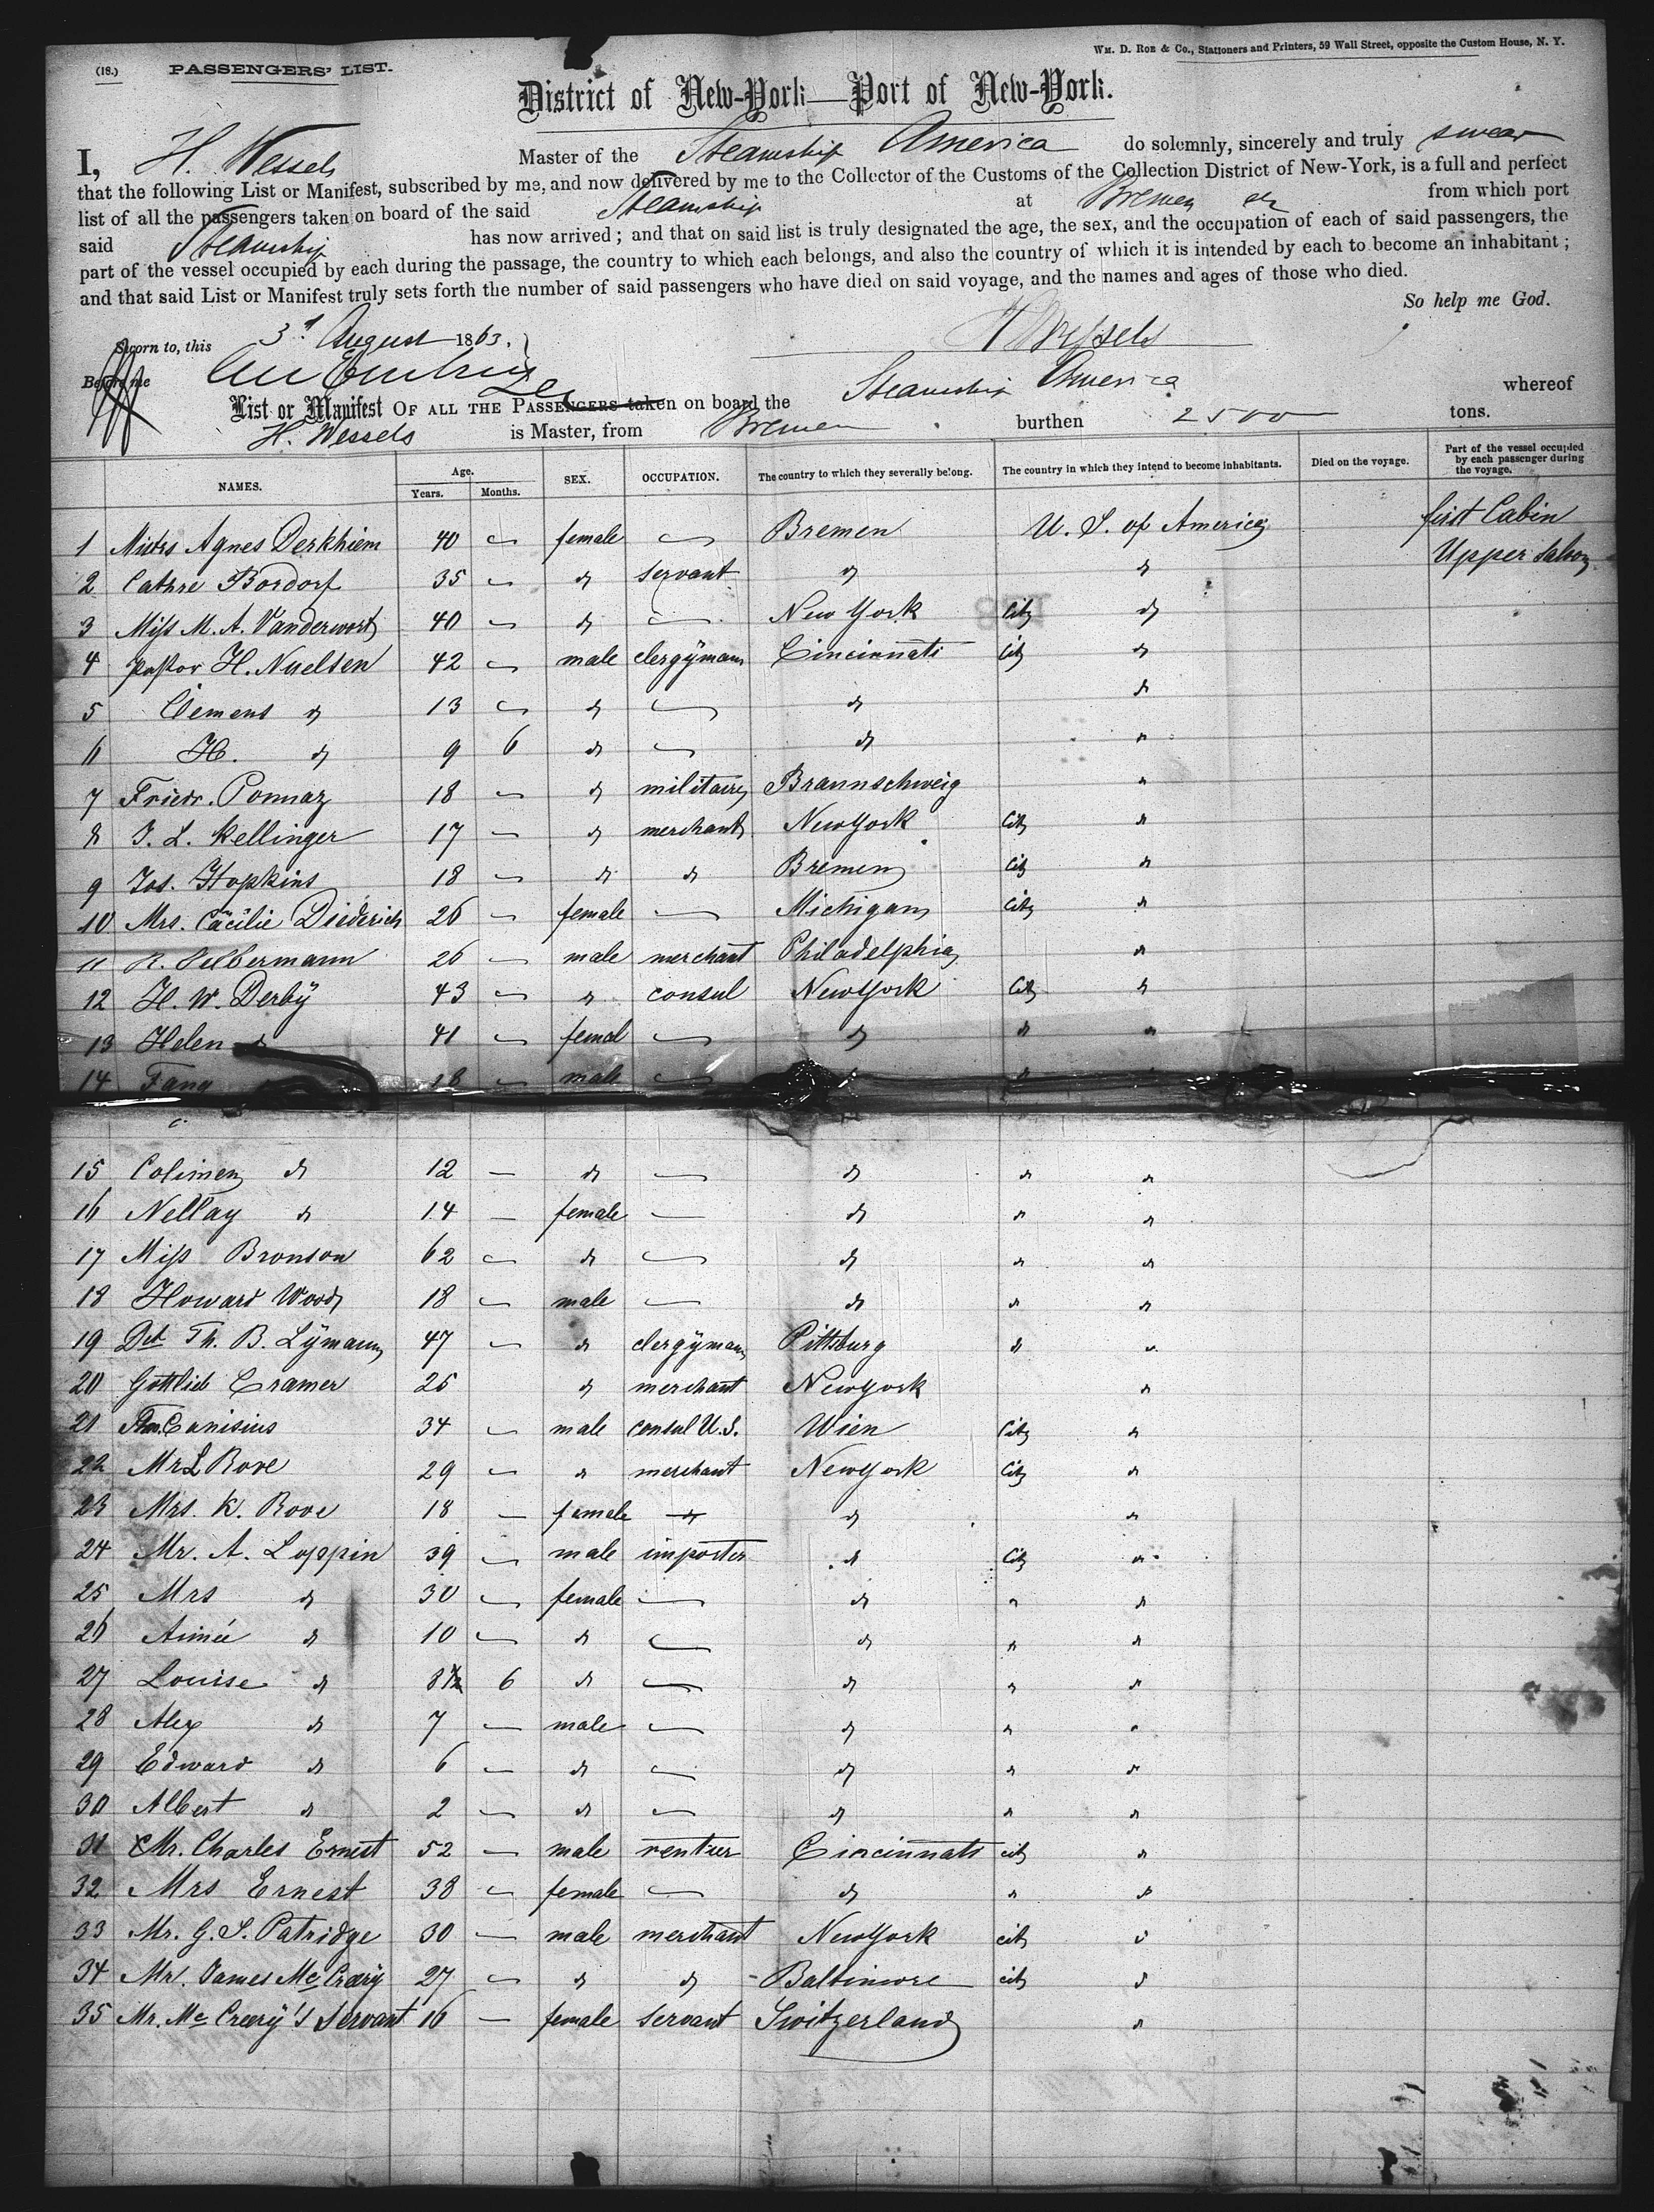 (18.) PASSENGERS' LIST.
WM. D. ROE & Co., Stationers and Printers, 59 Wall Street, opposite the Custom House, N. Y.
District of New-York—Port of New-York.
I, H. Wessels Master of the Steamship America do solemnly, sincerely and truly swear
that the following List or Manifest, subscribed by me, and now delivered by me to the Collector of the Customs of the Collection District of New-York, is a full and perfect
list of all the passengers taken on board of the said Steamship at Bremen from which port
said Steamship has now arrived; and that on said list is truly designated the age, the sex, and the occupation of each of said passengers, the
part of the vessel occupied by each during the passage, the country to which each belongs, and also the country of which it is intended by each to become an inhabitant;
and that said List or Manifest truly sets forth the number of said passengers who have died on said voyage, and the names and ages of those who died.
So help me God.
Sworn to, this 3d August 1863. H Wessels
Before me
List or Manifest OF ALL THE PASSENGERS taken on board the Steamship America whereof
H. Wessels is Master, from Bremen burthen 2500 tons.
NAMES. Age. Years. Months. SEX. OCCUPATION. The country to which they severally belong. The country in which they intend to become inhabitants. Died on the voyage. Part of the vessel occupied by each passenger during the voyage.
1 Agnes Derkhiem 40 — female — Bremen U. S. of America first Cabin
2 Cathre Bordorf 35 — " servant " " Upper Saloon
3 Miss M. A. Vanderwort 40 — " — New York City "
4 Pastor H. Nuelsen 42 — male clergyman Cincinnati City "
5 Clemens " 13 — " — " "
6 H. " 9 6 " — " "
7 Friedr. Ponnaz 18 — " military Braunschweig "
8 J. L. Kellinger 17 — " merchant New York City "
9 Jos. Hopkins 18 — " " Bremen City "
10 Mrs. Cäcilie Diederich 26 — female — Michigan City "
11 R. Silbermann 26 — male merchant Philadelphia "
12 H. W. Derby 43 — " consul New York City "
13 Helen " 41 — femal — " " "
14 Fany 18 — male — " "
15 Colimen " 12 — " — " " "
16 Nellay " 14 — female — " " "
17 Miss Bronson 62 — " — " " "
18 Howard Wood 18 — male — " " "
19 Th. B. Lyman 47 — " clergyman Pittsburg " "
20 Gottlieb Cramer 25 " merchant New York "
21 Canisius 34 — male consul U.S. Wien City "
22 Mr L Rove 29 — " merchant New York City "
23 Mrs. K. Rove 18 — female " "
24 Mr. A. Loppin 39 — male importer " City "
25 Mrs " 30 — female — " " "
26 Aimée " 10 — " — " " "
27 Louise " 8 6 " — " " "
28 Alex " 7 — male — " " "
29 Edward " 6 — " — " " "
30 Albert " 2 — " — " " "
31 Mr. Charles Ernest 52 — male rentier Cincinnati city "
32 Mrs Ernest 38 — female — " " "
33 Mr. G. S. Patridge 30 — male merchant New York city "
34 Mr. James Mc Creery 27 — " " Baltimore city "
35 Mr. Mc Creery's Servant 16 — female servant Switzerland "